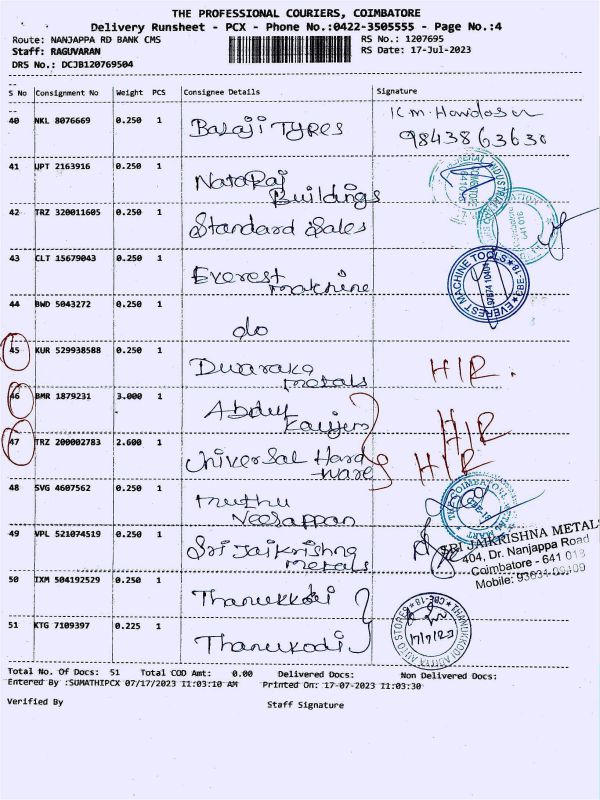 THE PROFESSIONAL COURIERS, COIMBATORE
Delivery Runsheet - PCX - Phone No.:0422-3505555 - Page No.:4
Route: NANJAPPA RD BANK CMS RS No.: 1207695
Staff: RAGUVARAN RS Date: 17-Jul-2023
DRS No.: DCJB120769504
S No Consignment No Weight PCS Consignee Details Signature
40 NKL 8076669 0.250 1 Balaji TYRES K.M. Haridasan
9843863630
41 UPT 2163916 0.250 1 NataRaj
Buildings
42 TRZ 320011605 0.250 1 Standard Sales
43 CLT 15679043 0.250 1 Everest
machine
EVEREST MACHINE TOOLS
CBE-18
44 BWD 5043272 0.250 1 do
45 KUR 529938588 0.250 1 Dwaraka
metals
H/R.
46 BMR 1879231 3.000 1 Abdul
H/R
47 TRZ 200002783 2.600 1 Universal Hard
ware
H/R
48 SVG 4607562 0.250 1 muthu
Veerappan
THE COIMBATORE
49 VPL 521074519 0.250 1 Sri Jaikrishna
metals
SRI JAIKRISHNA METAL
404, Dr. Nanjappa Road
Coimbatore - 641 018
Mobile:
50 IXM 504192529 0.250 1 Thanukkodi
51 KTG 7109397 0.225 1 Thanukodi
THANUKKODI ADITYA AUTO STORES CBE-18
17/7/23
Total No. Of Docs: 51 Total COD Amt: 0.00 Delivered Docs: Non Delivered Docs:
Entered By :SUMATHIPCX 07/17/2023 11:03:10 AM Printed On: 17-07-2023 11:03:30
Verified By Staff Signature